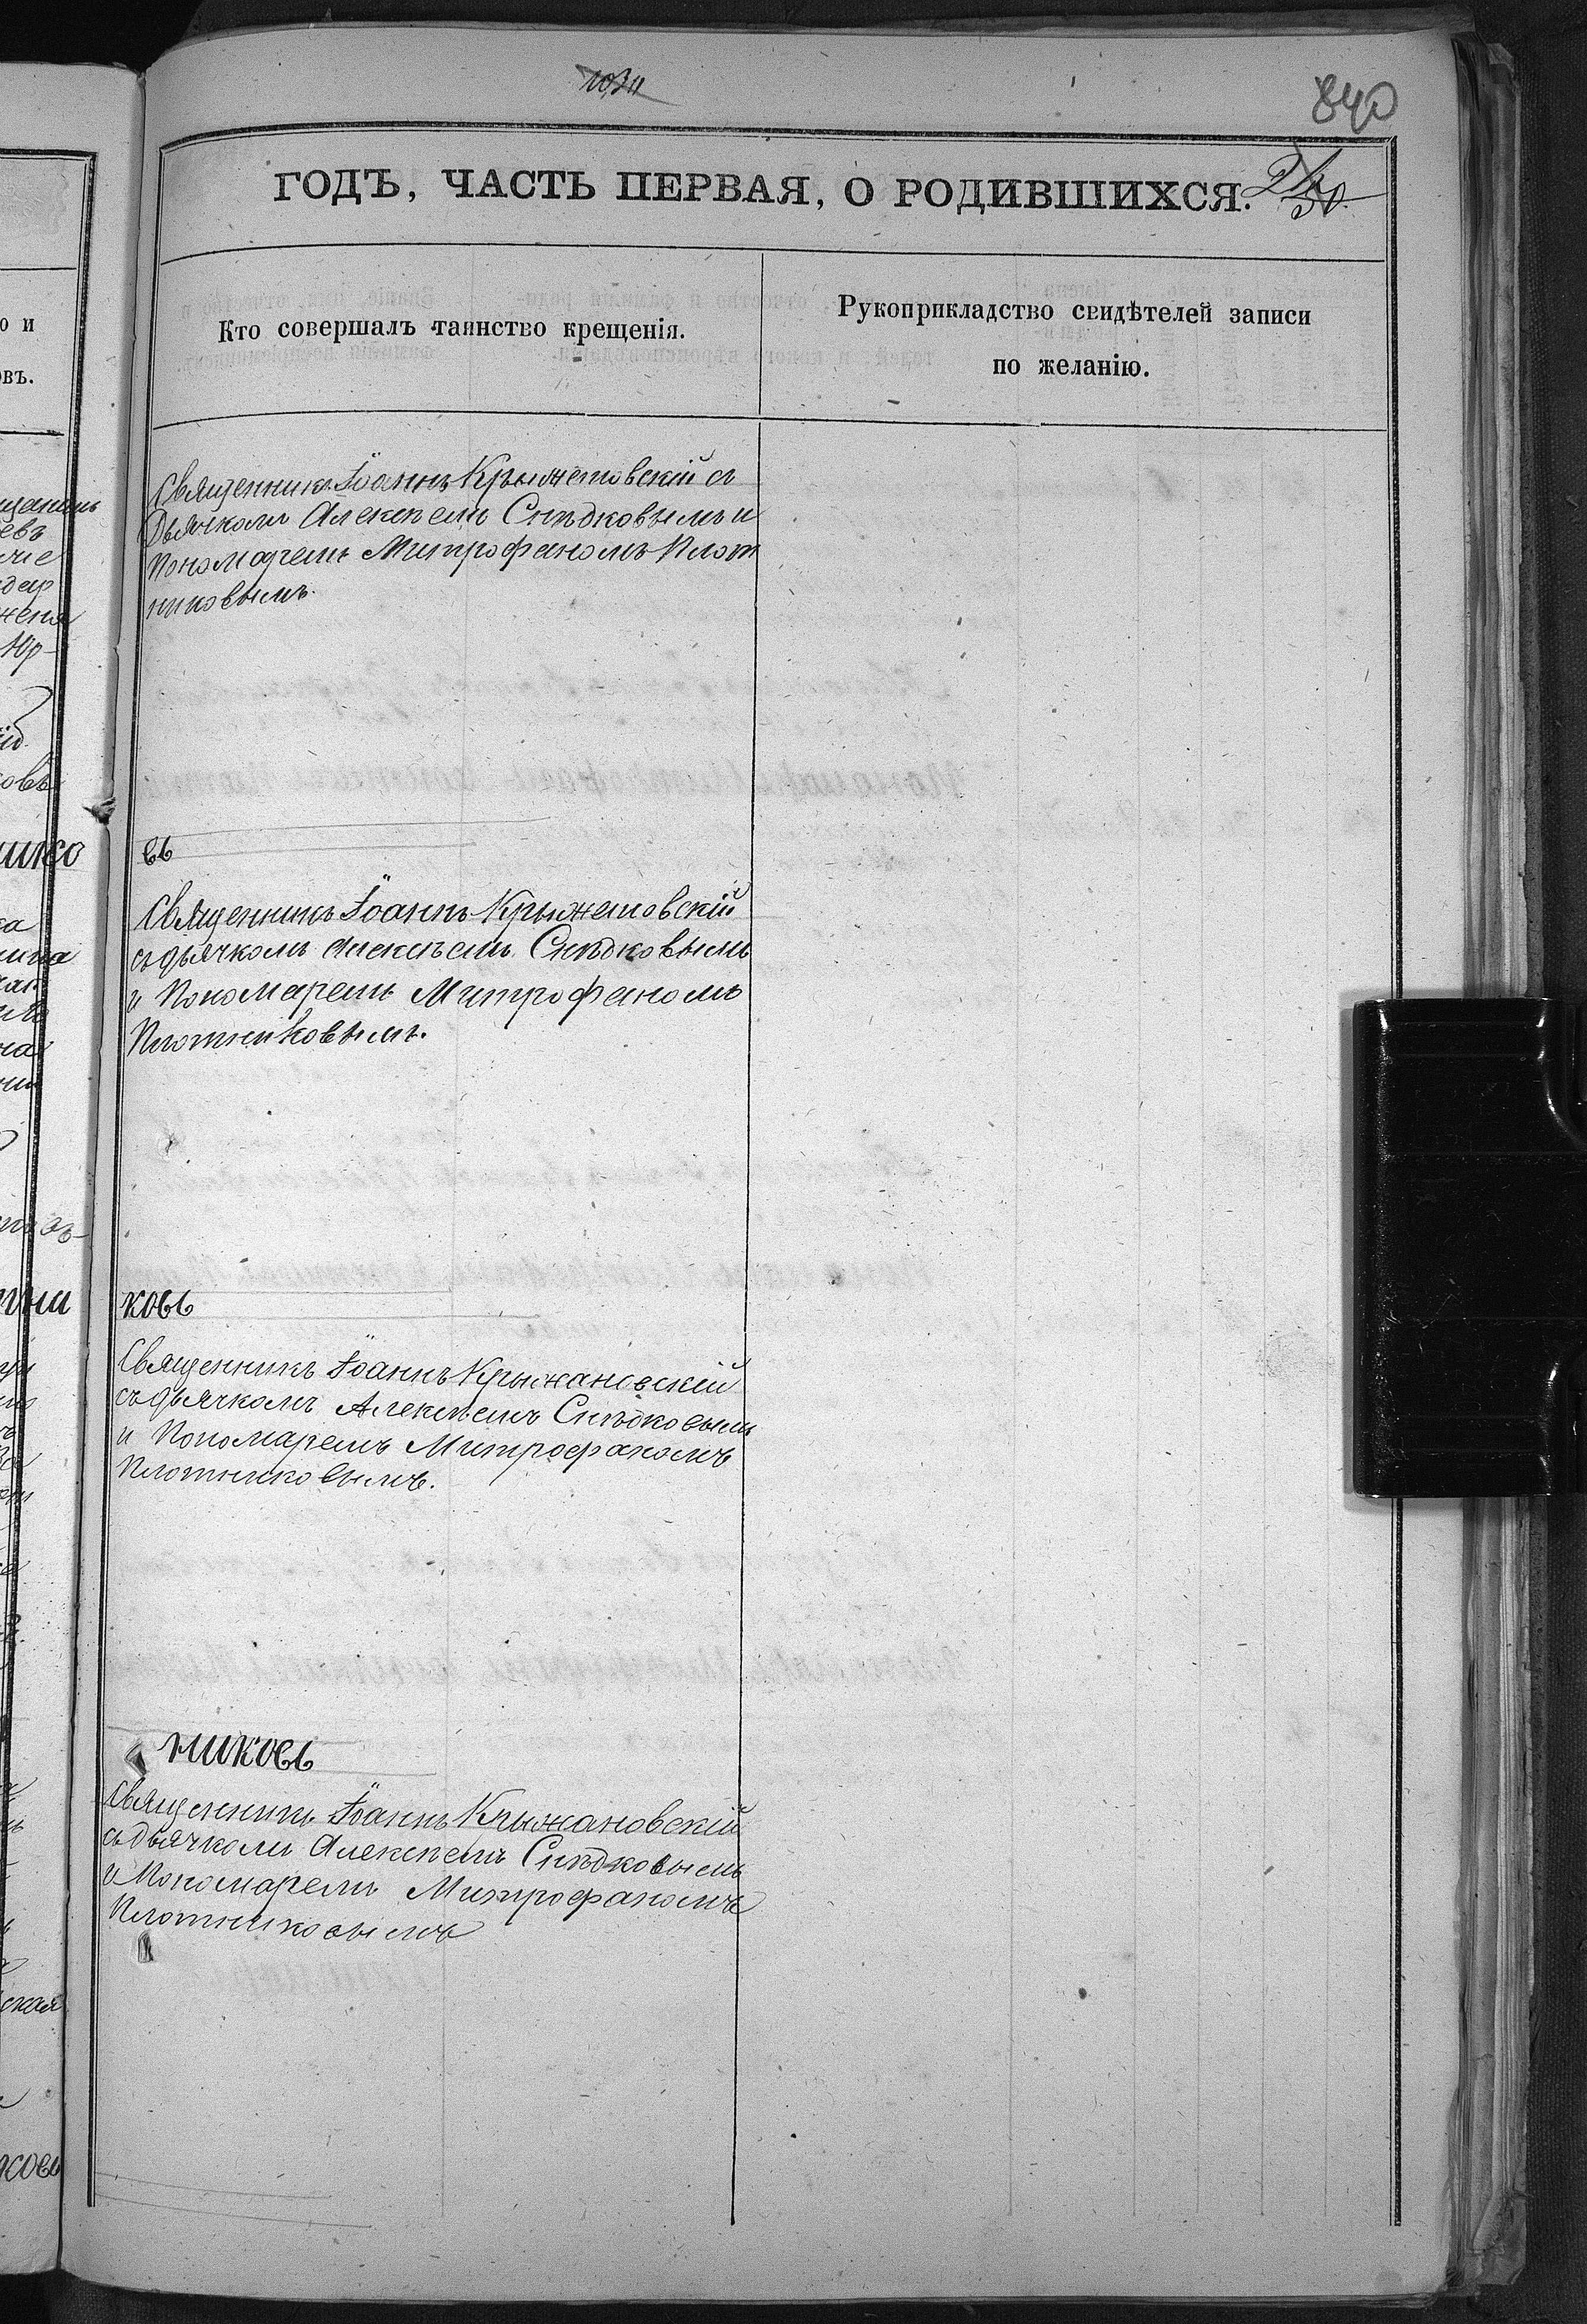 840
ГОДЪ, ЧАСТЬ ПЕРВАЯ, О РОДИВШИХСЯ.
Кто совершалъ таинство крещенія.
Рукоприкладство свидѣтелей записи
по желанію.
Священникъ Іоаннъ Крыжановскій съ
Дьячкомъ Алексѣемъ Снѣдковымъ и
Пономаремъ Митрофаномъ Плот
никовымъ.
въ
Священникъ Іоаннъ Крыжановскій
съ дьячкомъ Алексѣемъ Снѣдковымъ
и Пономаремъ Митрофаномъ
Плотниковымъ.
ковъ
Священникъ Іоаннъ Крыжановскій
съ дьячкомъ Алексѣемъ Снѣдковымъ
и Пономаремъ Митрофаномъ
Плотниковымъ.
никовъ
Священникъ Іоаннъ Крыжановскій
съ дьячкомъ Алексѣемъ Снѣдковымъ
и Пономаремъ Митрофаномъ
Плотниковымъ